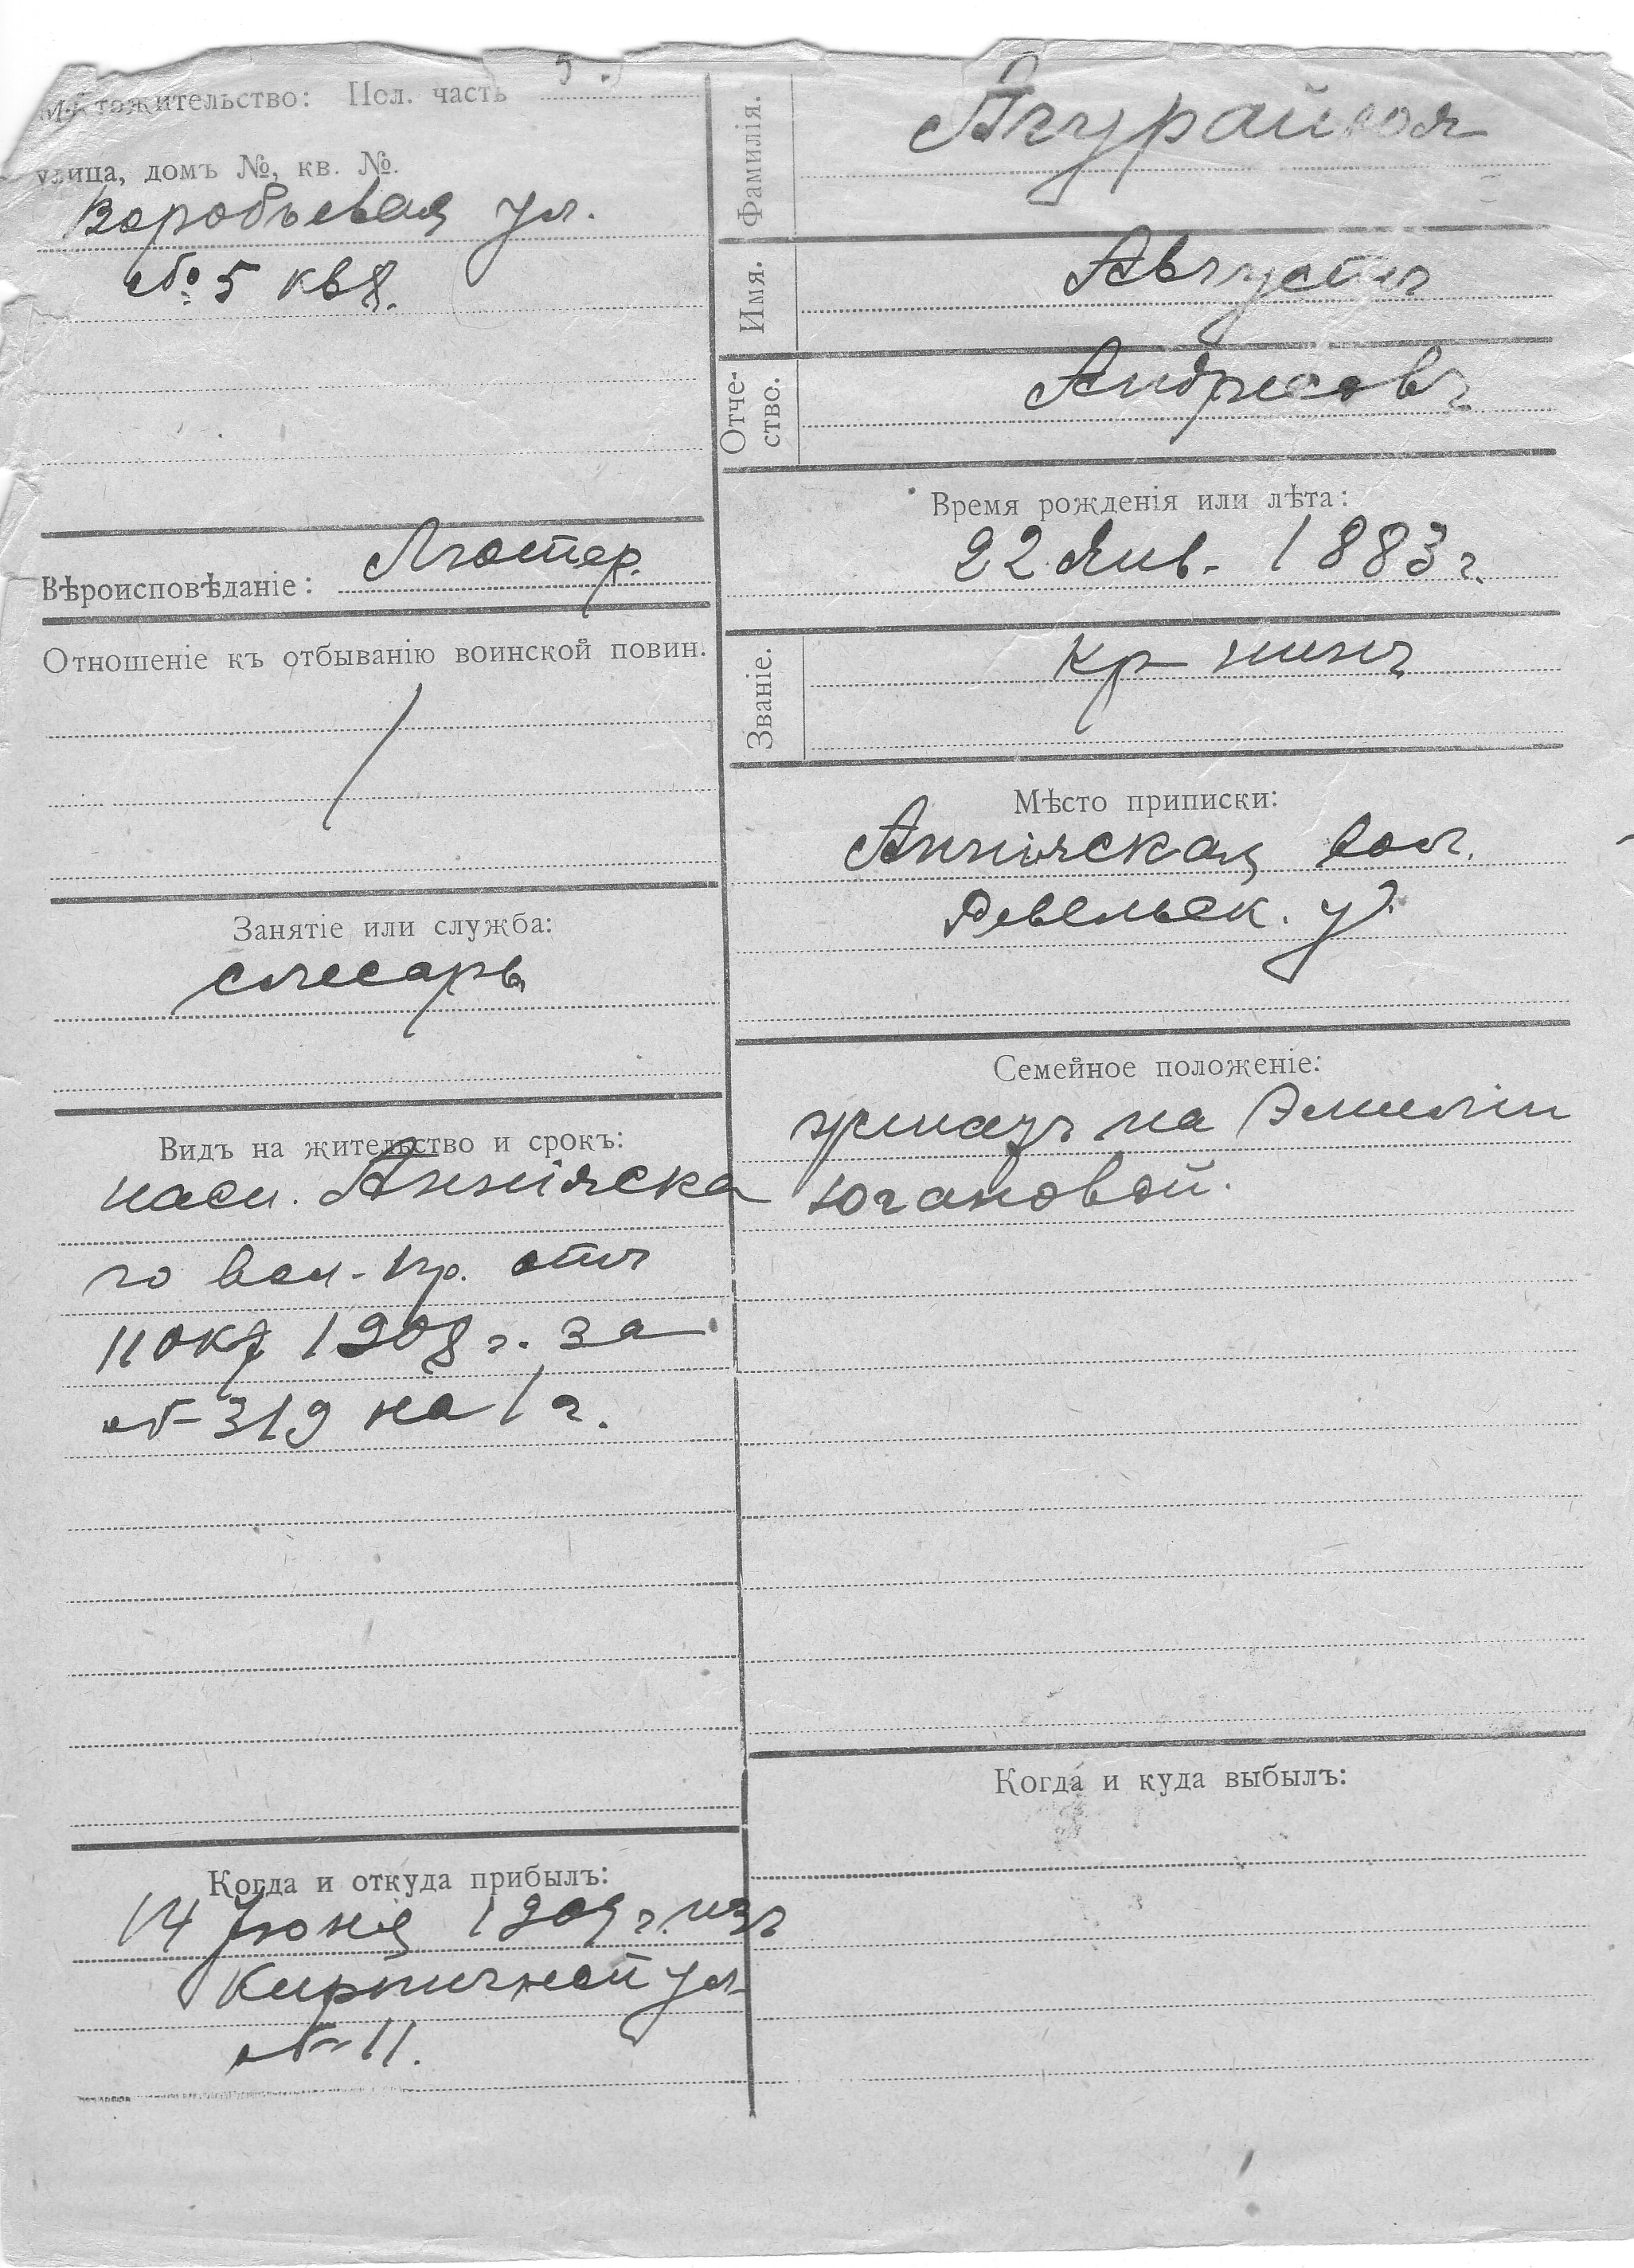 Мѣстожительство: Пол. часть
улица, домъ №, кв. №.
Воробьевая ул.
№ 5 кв 8.
Вѣроисповѣданіе: Лютер.
Отношеніе къ отбыванію воинской повин.
Занятіе или служба:
слесарь
Видъ на жительство и срокъ:
пасп. Аннійска
го вол. пр. отъ
11 окт 1908 г. за
№ 319 на 1 г.
Когда и откуда прибылъ:
14 Іюня 1909 г. изъ
Кирпичной ул
№ 11.
Фамилія.
Имя. Августъ
Отче-
ство. Андресовъ
Время рожденія или лѣта:
22 Янв. 1883 г.
Званіе. кр-нинъ
Мѣсто приписки:
Аннійская вол.
Ревельск. у.
Семейное положеніе:
женатъ на Эмиліи
Югановой.
Когда и куда выбылъ: